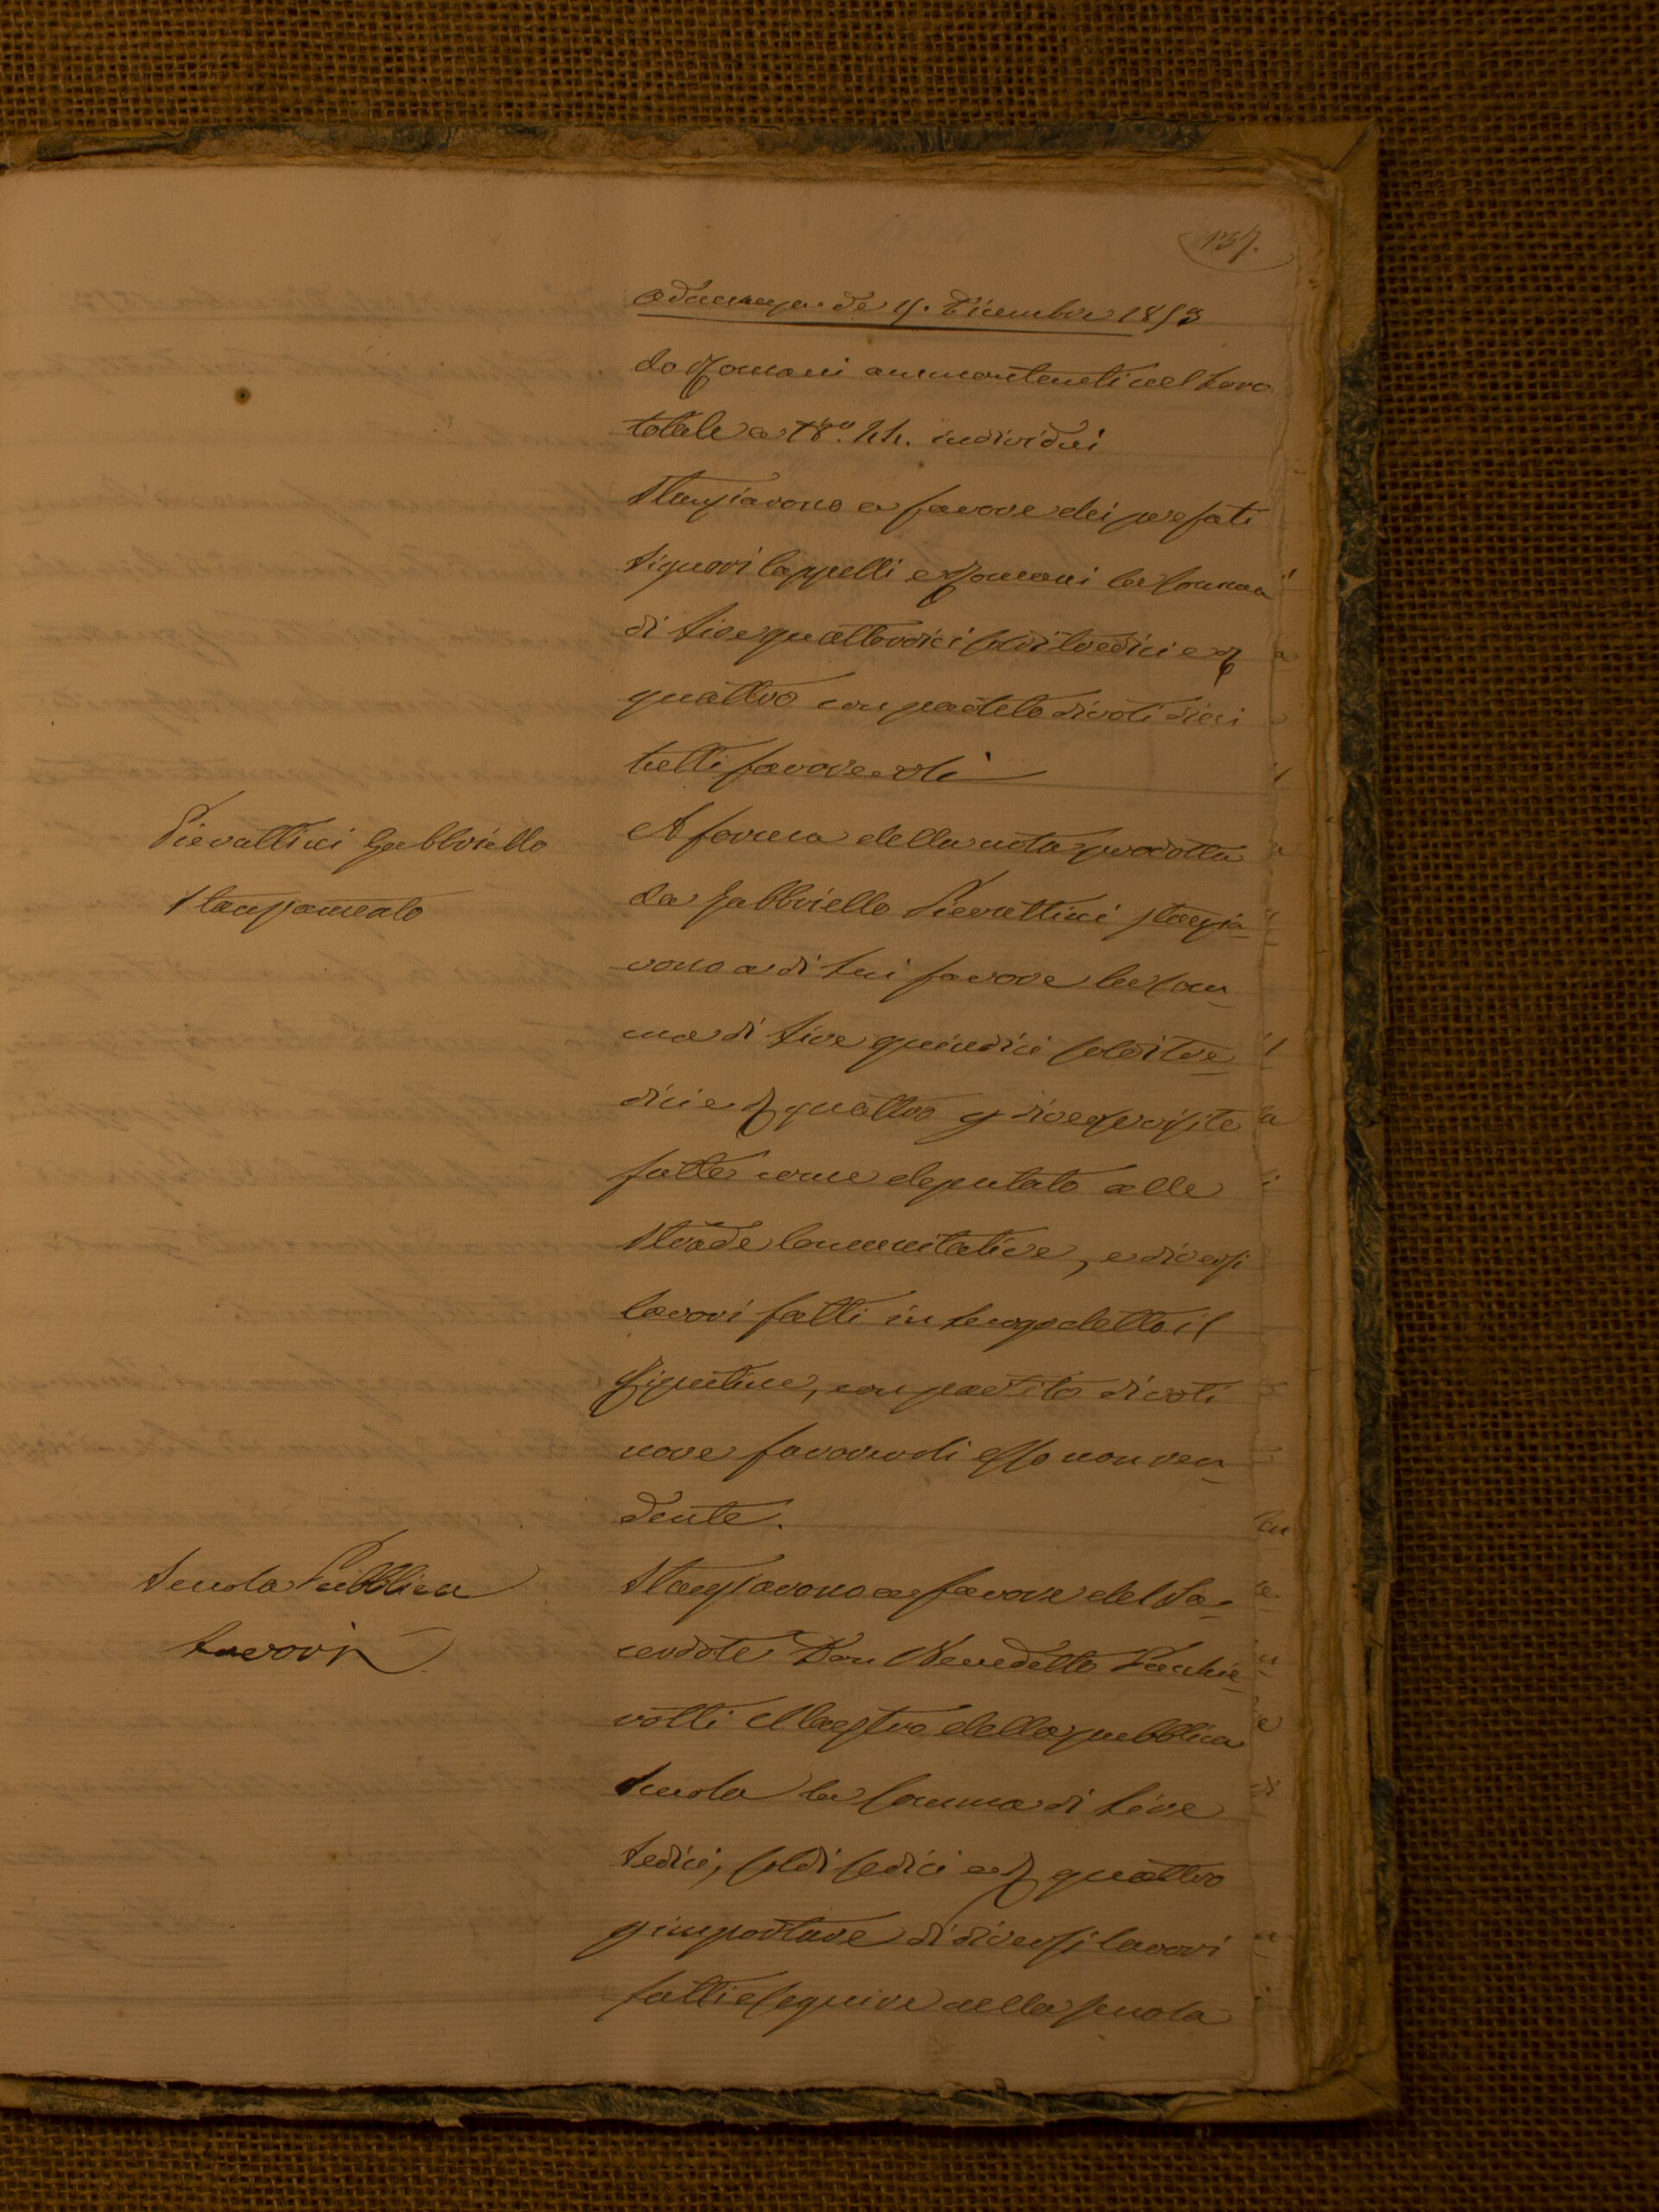 137.
Adunanza de 9. Dicembre 1853
do Romani ammontenti nel loro
totale a N.° 44. individui
Stanziarono a favore dei prefati
Signori Cappelli e Romani la somma
di Lire quattordici soldi tredici e d
quattro con partito di voti dieci
tutti favorevoli
Pierattini Gabbriello
Stanziamento
A forma della nota prodotta
da Gabbriello Pierattini stanzia-
rono a di lui favore la som-
ma di Lire quindici soldi tre-
dici e d quattro p diverse visite
fatte come deputato alle
Strade Comunitative, e diversi
lavori fatti in luogo detto il
con partito di voti
nove favorevoli esso non ren-
dente.
Scuola Pubblica
Lavori
Stanziarono a favore del Sa-
cerdote Don Benedetto Pacchie-
rotti Maestro della pubblica
Scuola la somma di Lire
Sedici, soldi sedici e d quattro
p importare di diversi lavori
fatti eseguire alla scuola